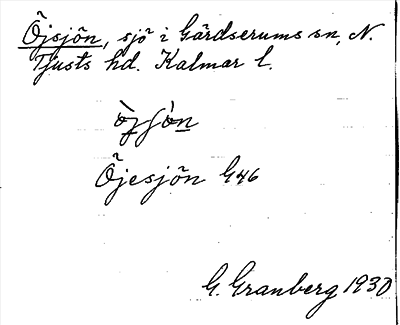 Öjsjön, sjö i Gärdserums sn, N.
Tjusts hd. Kalmar l.
Öjesjön G46
G. Granberg 1930